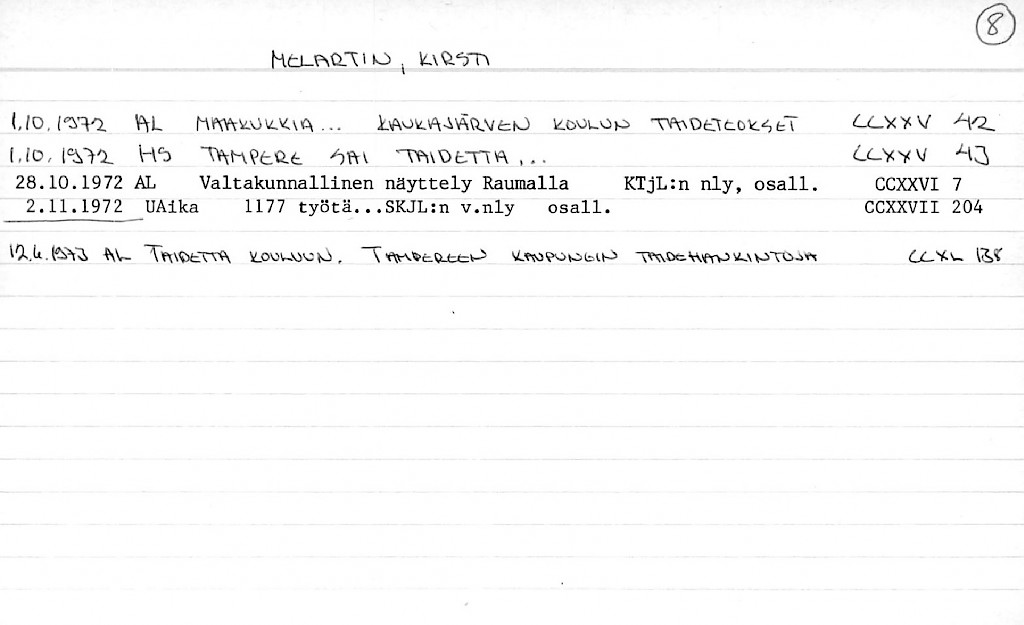 8
MELARTIN, KIRSTI
1.10.1972 AL MAAKUKKIA... KAUKAJÄRVEN KOULUN TAIDETEOKSET CCXXV 42
1.10.1972 HS TAMPERE SAI TAIDETTA... CCXXV 43
28.10.1972 AL Valtakunnallinen näyttely Raumalla KTjL:n nly, osall. CCXXVI 7
2.11.1972 UAika 1177 työtä...SKJL:n v.nly osall. CCXXVII 204
12.6.1973 AL TAIDETTA KOULUUN. TAMPEREEN KAUPUNGIN TAIDEHANKINTOJA CCXL 138